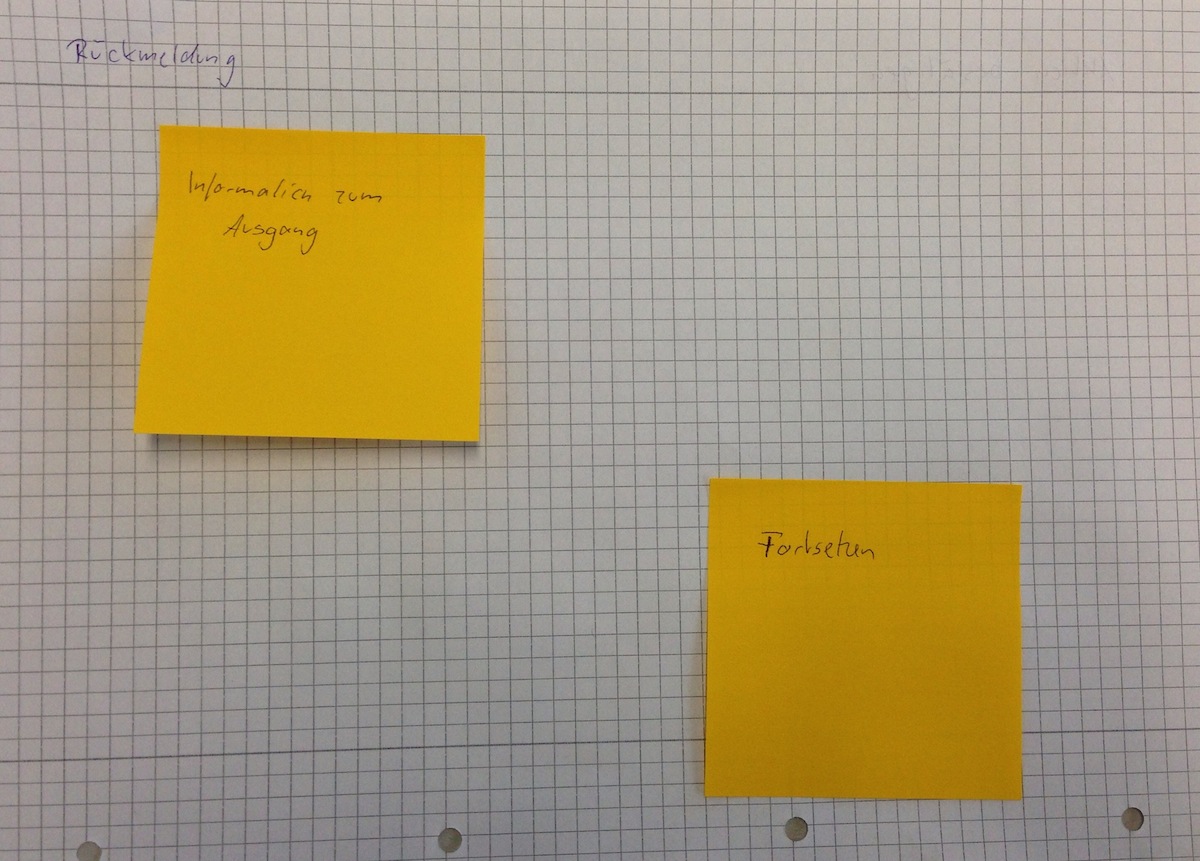 Rückmeldung
Information zum
Ausgang
Fortsetzen